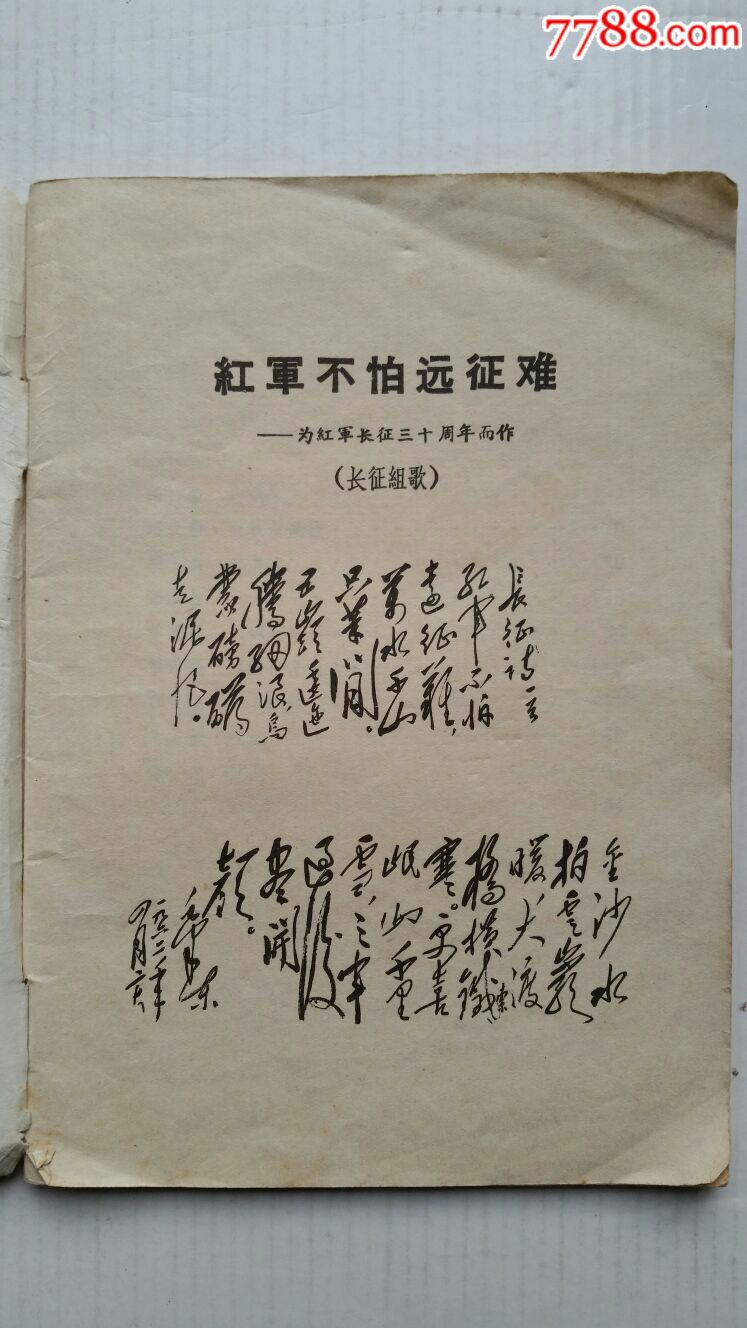 7788.com
紅軍不怕远征难
——为紅軍长征三十周年而作
(长征組歌)
長征詩一首
红軍不怕
遠征難,
萬水千山
只等閒。
五嶺逶迤
騰細浪烏
蒙磅礴
走泥丸。
金沙水
拍雲巖
暖大渡
橋橫鐵索
寒。更喜
岷山千里
雪,三軍
過後
盡開
顏。
毛澤东
一九六二年
四月